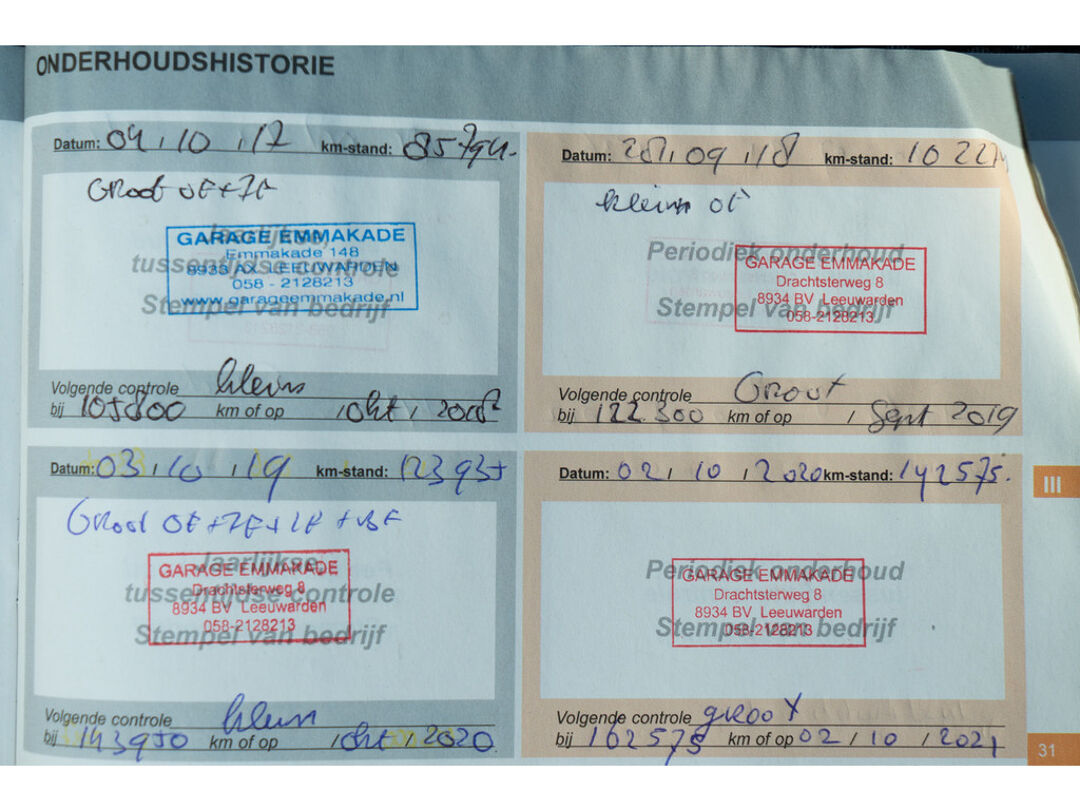 ONDERHOUDSHISTORIE
Datum: 04 / 10 / 17 km-stand: 85794.
Groot OF+IF
Jaarlijkse,
tussentijdse controle
Stempel van bedrijf
GARAGE EMMAKADE
Emmakade 148
8933 AX LEEUWARDEN
058 - 2128213
www.garageemmakade.nl
Volgende controle klein
bij 105800 km of op / okt / 2018
Datum: 28 / 09 / 18 km-stand:
klein OF
Periodiek onderhoud
Stempel van bedrijf
GARAGE EMMAKADE
Drachtsterweg 8
8934 BV Leeuwarden
058-2128213
Volgende controle Groot
bij 122300 km of op / Sept 2019
Datum: 03 / 10 / 19 km-stand: 123935
Groot OF+IF+LF+BF
Jaarlijkse
tussentijdse controle
Stempel van bedrijf
GARAGE EMMAKADE
Drachtsterweg 8
8934 BV Leeuwarden
058-2128213
Volgende controle klein
bij 143950 km of op / okt / 2020
Datum: 02 / 10 / 2020 km-stand: 142575.
Periodiek onderhoud
Stempel van bedrijf
GARAGE EMMAKADE
Drachtsterweg 8
8934 BV Leeuwarden
058-2128213
Volgende controle groot
bij 162575 km of op 02 / 10 / 2021
III
31